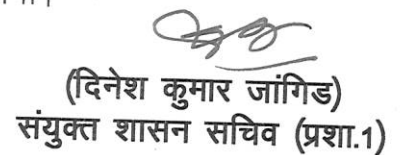 (दिनेश कुमार जांगिड)
संयुक्त शासन सचिव (प्रशा.1)